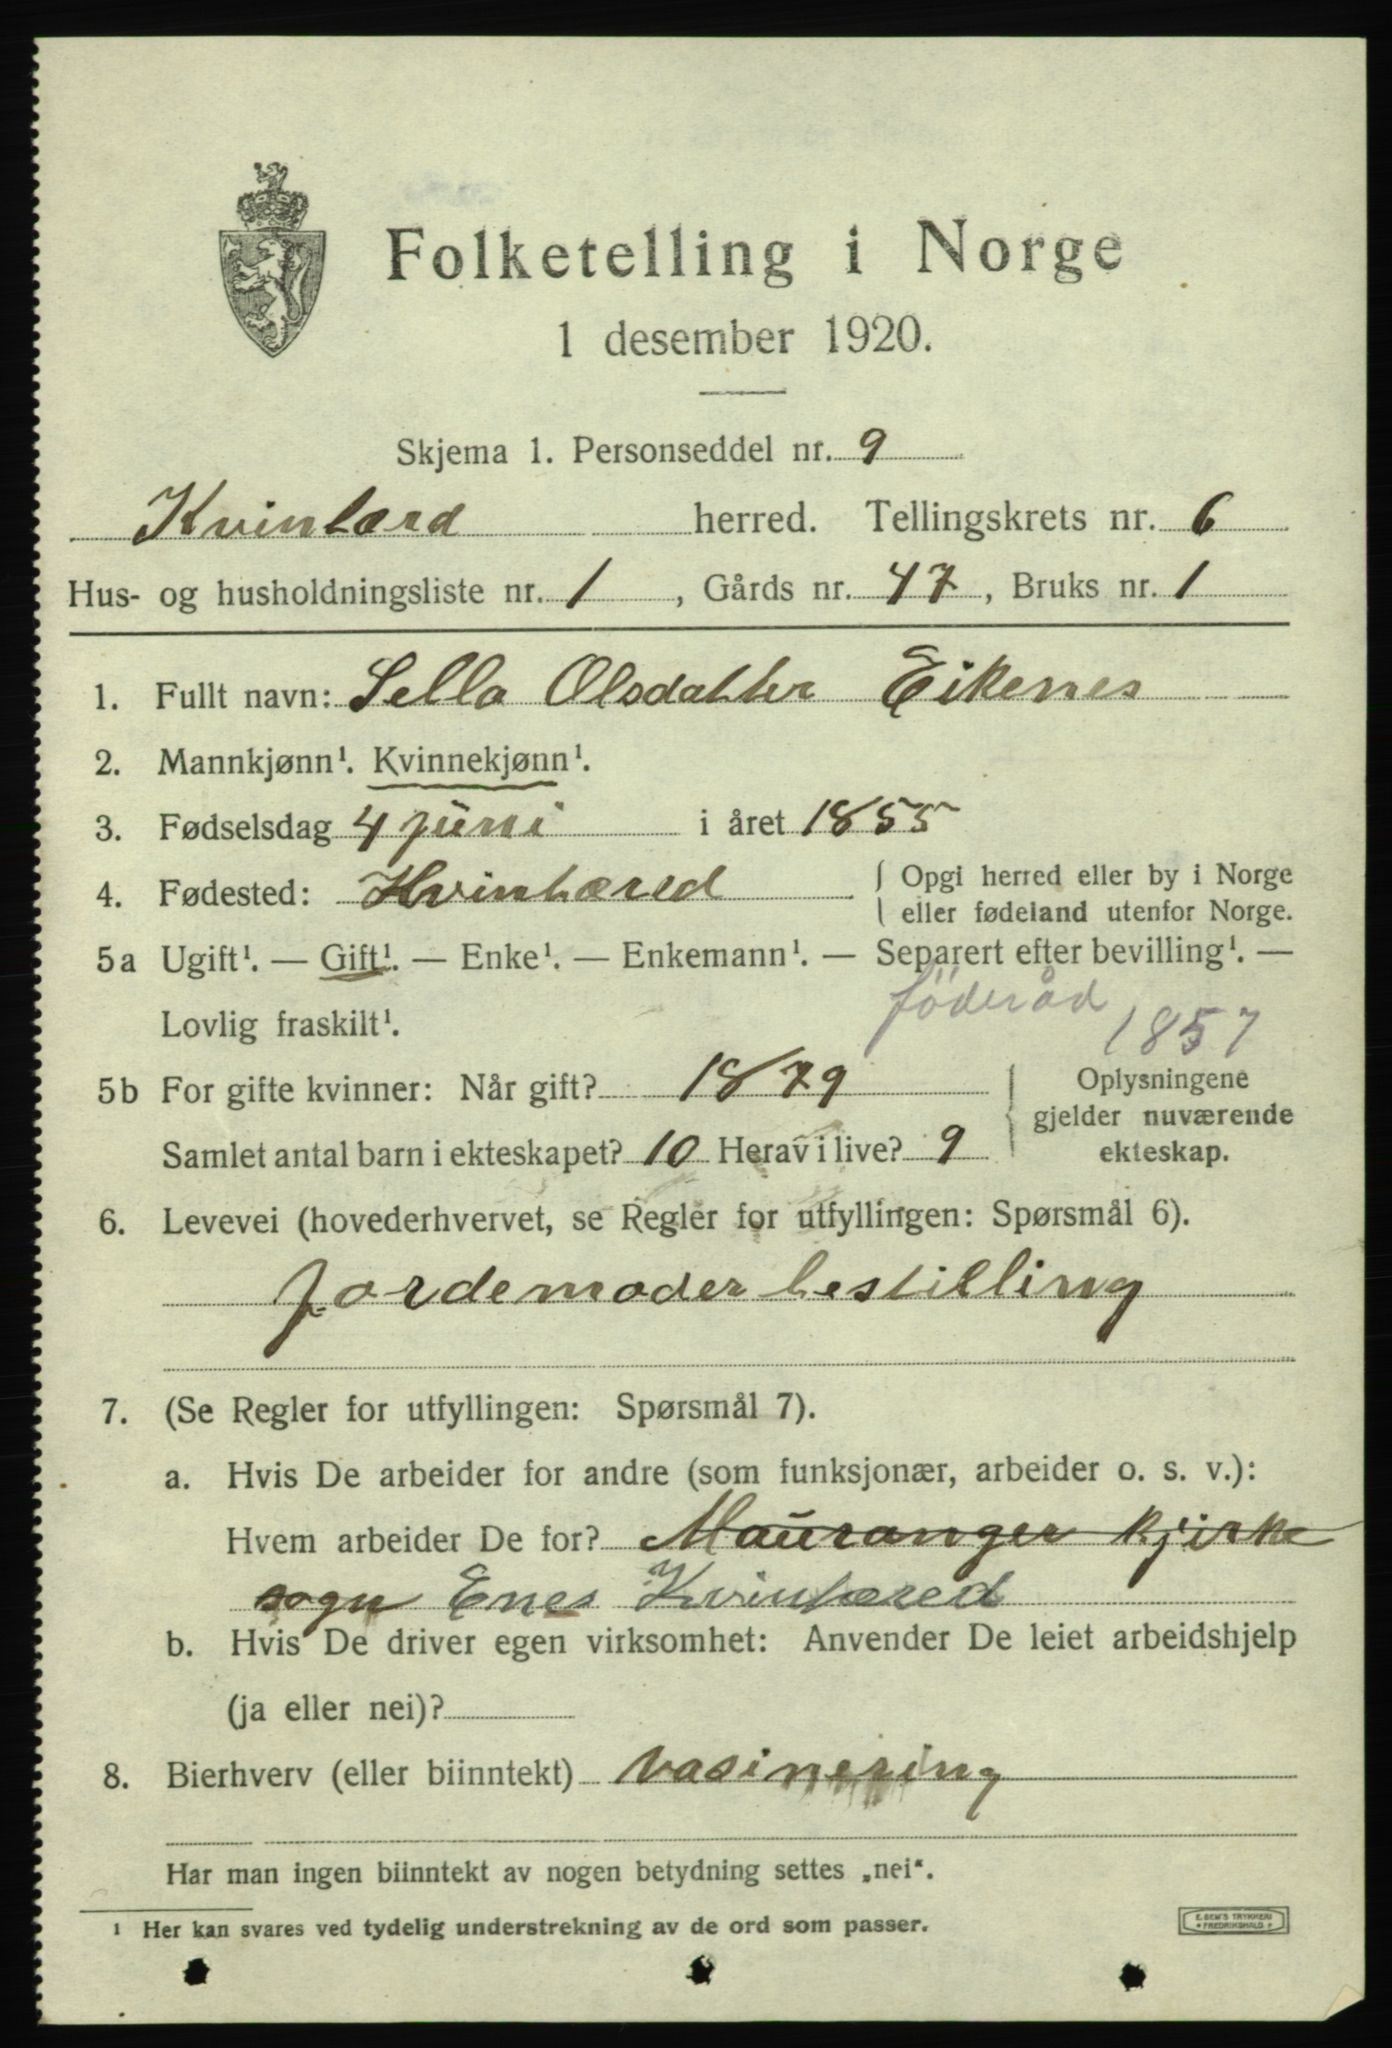 Folketelling i Norge
1 desember 1920.
Skjema 1. Personseddel nr. 9
Kvinlærd herred. Tellingskrets nr. 6
Hus- og husholdningsliste nr. 1, Gårds nr. 47, Bruks nr. 1
1. Fullt navn: Sella Olsdatter Eikenes
2. Mannkjønn¹. Kvinnekjønn¹.
3. Fødselsdag 4 juni i året 1855
4. Fødested: Kvinhæred { Opgi herred eller by i Norge
eller fødeland utenfor Norge.
5a Ugift¹. — Gift¹. — Enke¹. — Enkemann¹. — Separert efter bevilling¹. —
föderåd
Lovlig fraskilt¹. 1857
5b For gifte kvinner: Når gift? 1879 { Oplysningene
gjelder nuværende
Samlet antal barn i ekteskapet? 10 Herav i live? 9 ekteskap.
6. Levevei (hovederhvervet, se Regler for utfyllingen: Spørsmål 6).
Jordemoder bestilling
7. (Se Regler for utfyllingen: Spørsmål 7).
a. Hvis De arbeider for andre (som funksjonær, arbeider o. s. v.):
Hvem arbeider De for? Mauranger kjirke
sogn Enes Kvinhæred
b. Hvis De driver egen virksomhet: Anvender De leiet arbeidshjelp
(ja eller nei)?
8. Bierhverv (eller biinntekt) vasinering
Har man ingen biinntekt av nogen betydning settes „nei“.
¹ Her kan svares ved tydelig understrekning av de ord som passer.
E. SEM'S TRYKKERI
* FREDRIKSHALD *